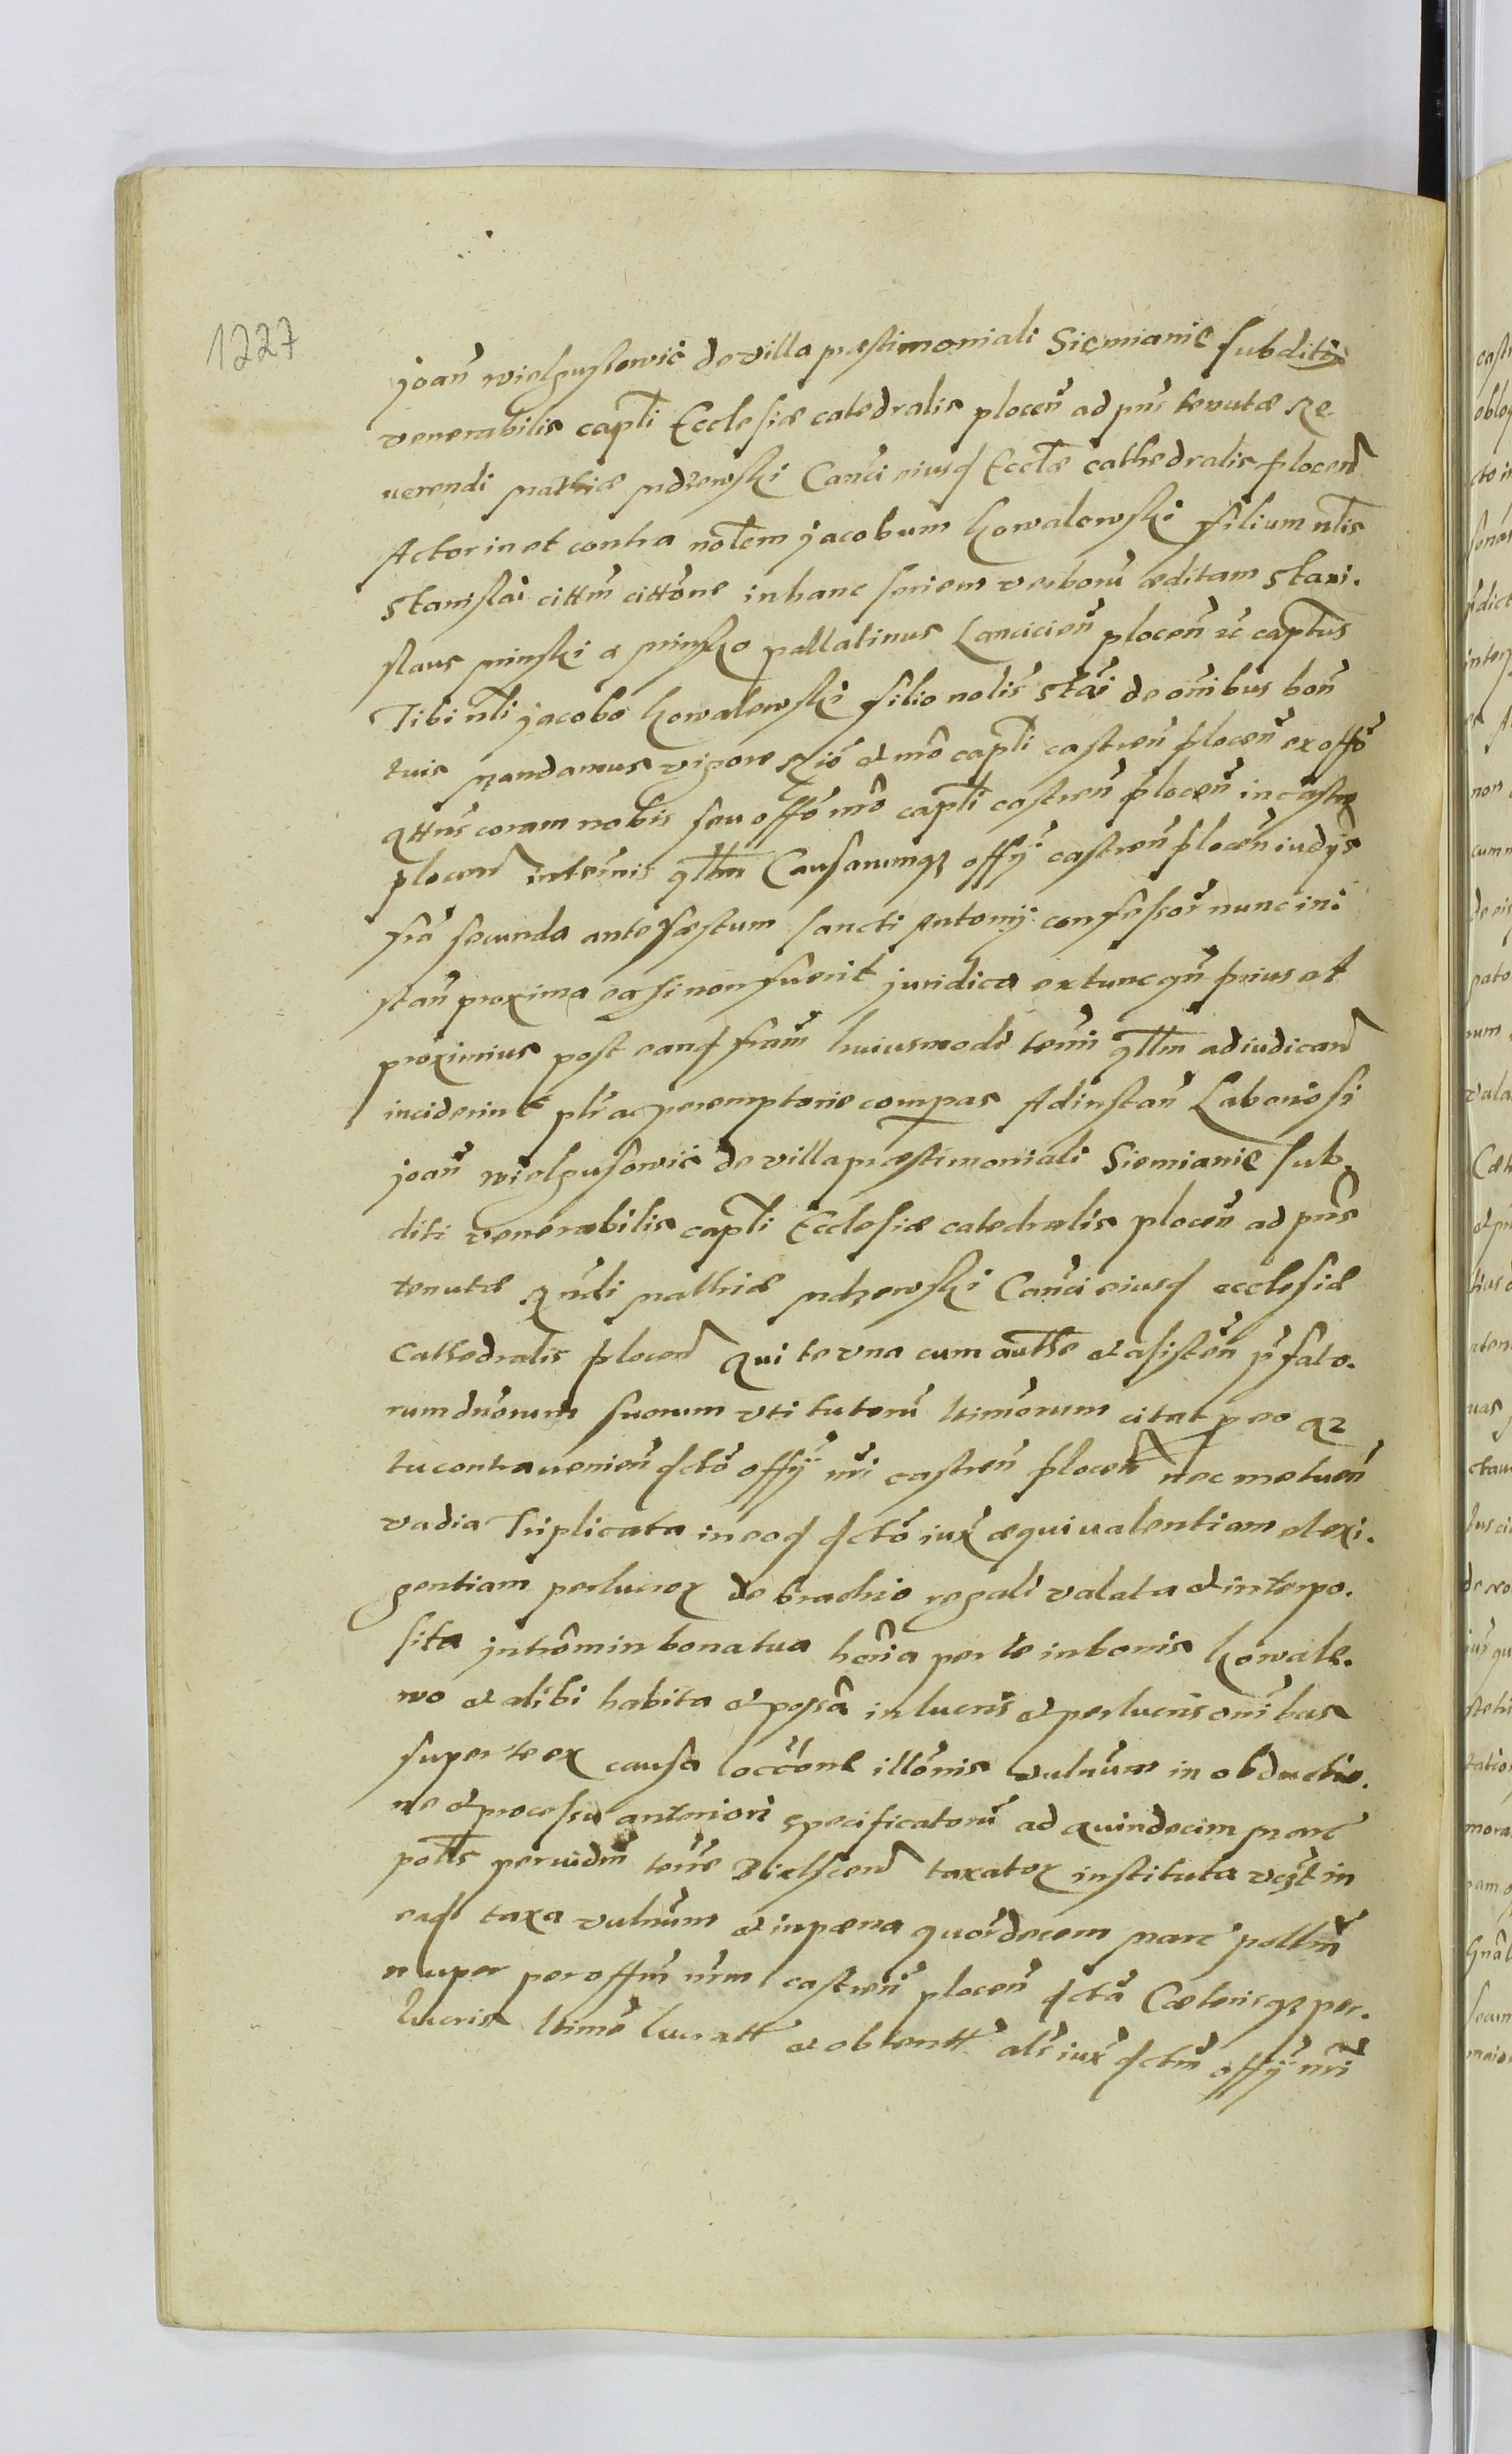 1227
joan̄ wielgussowic de villa præstimoniali Siemianie subditi
venerabilis capt̄li Ecclesiæ catedralis plocen̄ ad pn̄s tenutæ Re
verendi Mathiæ Mdzewski Can̄ci eiusd Eccl̄æ cathedralis plocen̄
Actor in et contra nob̄lem jacobum kowalewski filium nb̄lis
stanislai citt̄m citt̄one in hanc seriem verborū æditam stani.
slaus minski a minsko pallatinus Lancicien̄ plocen̄ zc capt̄us
Tibi nb̄li jacobo kowalewski filio nob̄lis st̄ai de om̄ibus bon̄
tuis Mandamus vigore Rīō et mō capt̄li castren̄ plocen̄ ex off̄o
qtt̄us coram nobis seu off̄o nr̄o capt̄li castren̄ plocen̄ in castro
plocen̄ interm̄is qllm̄ Causarumq; offȳ castren̄ plocen̄ iudȳs
fr̄ā secunda ante fæstum sancti Antonij confessor̄ nunc ini
stan̄ proxima ea si non fuerit juridica ex tunc qn̄ prius et
proximius post eand fr̄am huiusmodi term̄i qllm̄ adiudican̄
inciderint pl̄r ac peremptorie compas Ad instan̄ Laboriosi
joan̄ wielgusowic de villa præstimoniali Siemianie sub
diti venerabilis capt̄li Ecclesiæ catedralis plocen̄ ad pn̄s
tenutæ Rn̄di Mathiæ Mdzewski Can̄ci eiusd ecclesiæ
Cathedralis plocen̄ Qui te vna cum auth̄e et asisten̄ p̄fato.
rum dn̄orum suorum vti tutorū ltimōrum citat pro eo qz
tu contravenien̄ dctō offȳ nr̄i castren̄ plocen̄ nec metuen̄
vadia Triplicata in eod dctō iux̄ æquivalentiam et exi.
gentiam perlucror de brachio regali valata et interpo.
sita jntrōm in bona tua hōria per te in bonis kowale.
wo et alibi habita et possā in lucris et perlucris om̄ibus
super te ex causa occ̄one illōnis vulnūm in obductio.
ne et processu anteriori specificatorū ad quindecim Marc
poll̄s per vidm̄ terr̄e Bielscen̄ taxator instituta vezt in
ead taxa vulnūm et in pæna quor̄ decem Marc̄ pollm̄
nuper per offm̄ nr̄m castren̄ plocen̄ dctā Cæterisqz per.
lucris ltimē lucratt et obtentt al̄s iux̄ dctm̄ offȳ nr̄i